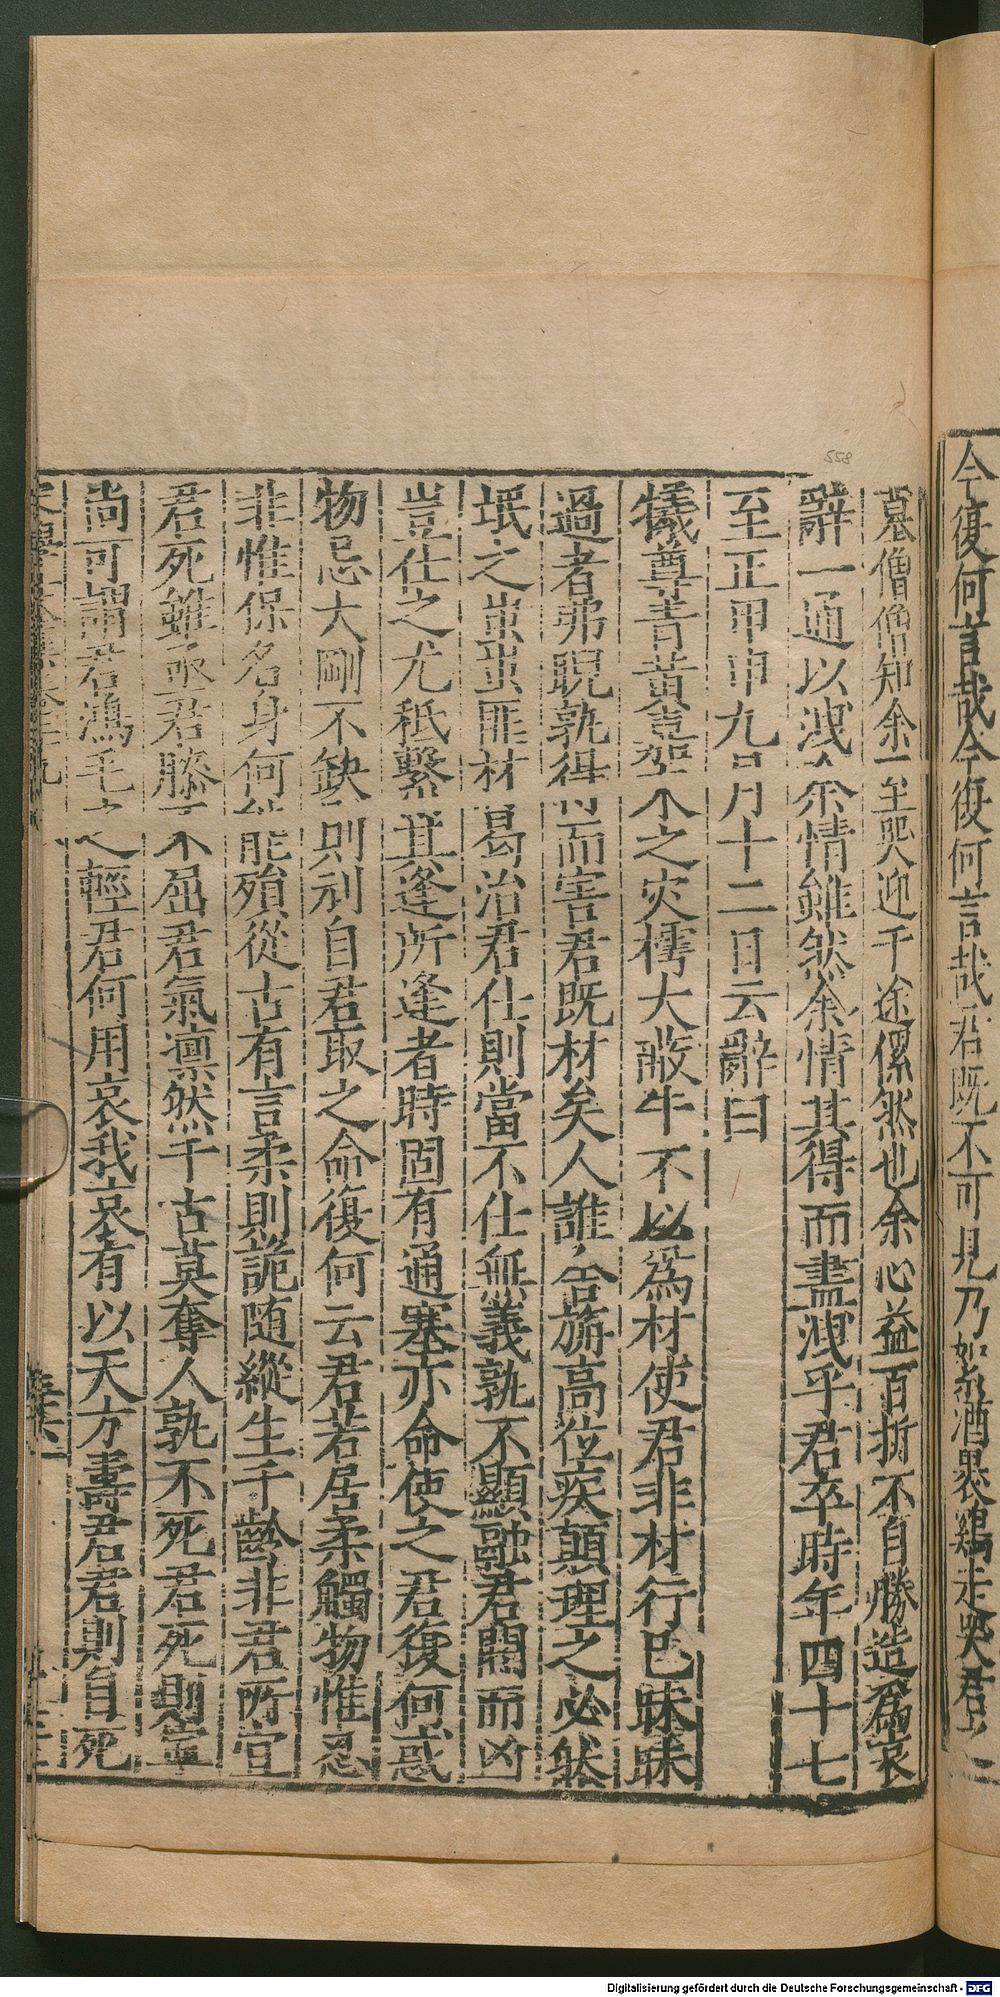 今復何言哉今復何言哉君既不可見乃絮酒裹鷄走哭君
墓僧僧知余至哭迎千途傫然也余心益百折不自勝造爲哀
辭一通以洩余情雖然余情其得而盡洩乎君卒時年四十七
至正甲申九月十二日云辭曰
犧尊青黃豈木之灾樗大蔽牛不以爲材使君非材行巳昧昧
過者弗睨孰得而害君既材矣人誰舍旃高位疾顛理之必然
垊之蚩蚩匪材曷治君仕則當不仕無義孰不顯融君閼而凶
豈仕之尤秪繫其逢所逢者時固有通塞亦命使之君復何惑
物忌大剛不缺則刓自君取之命復何云君若居柔觸物惟忍
非惟保名身何能殞從古有言柔則詭随縱生千齡非君所宜
君死雖亟君膝不屈君氣凛然千古莫奪人孰不死君死則寧
尚可謂君鴻毛之輕君何用哀我哀有以天方壽君君則自死
558
Digitalisierung gefördert durch die Deutsche Forschungsgemeinschaft - DFG